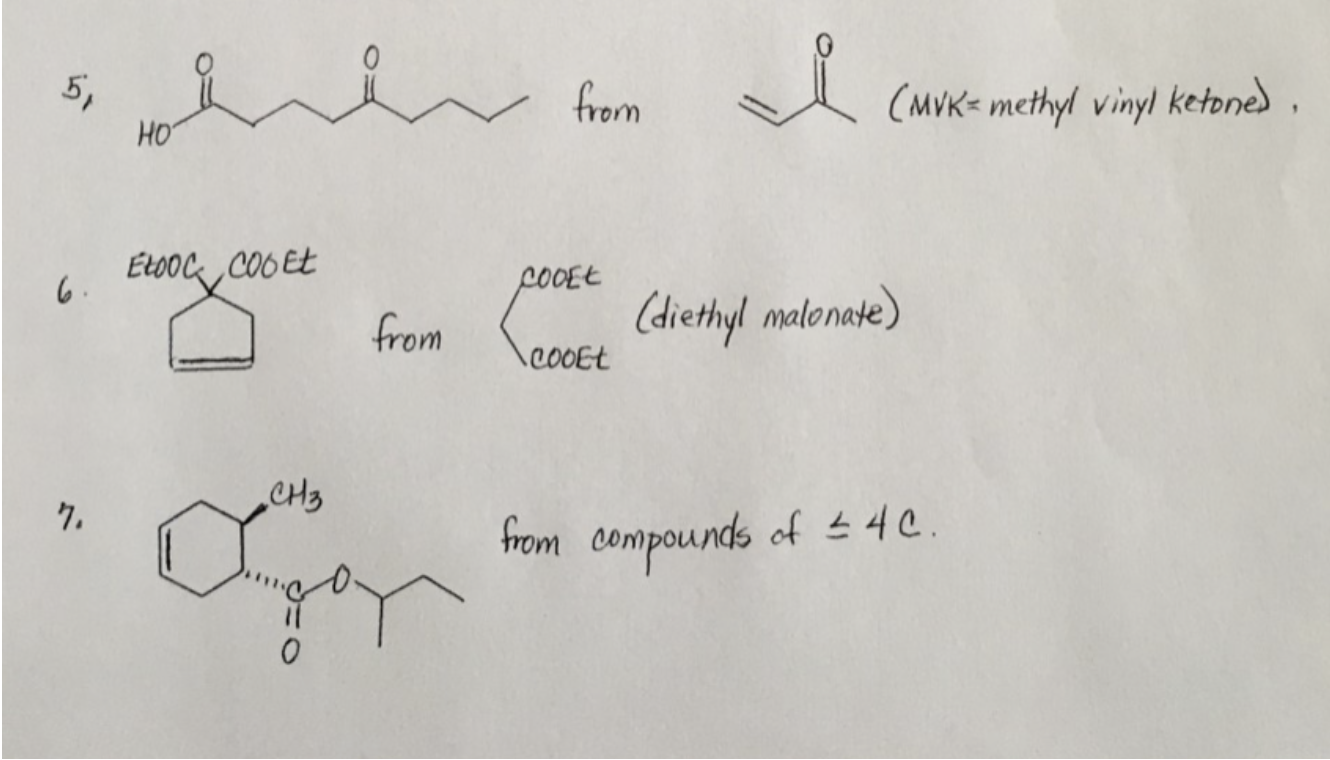 5, HO O O from O (MVK= methyl vinyl ketone).
6. EtOOC COOEt from COOEt COOEt (diethyl malonate)
7. CH3 C O O from compounds of ≤ 4 C.